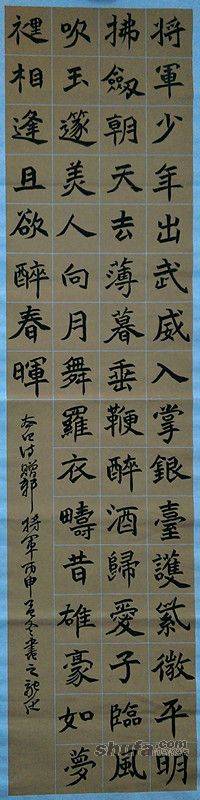 將軍少年出武威入掌銀臺護紫微平明
拂劒朝天去薄暮垂鞭醉酒歸愛子臨風
吹玉篴美人向月舞羅衣疇昔雄豪如夢
裡相逢且欲醉春暉
贈郭將軍丙申孟冬書之
shufa.com